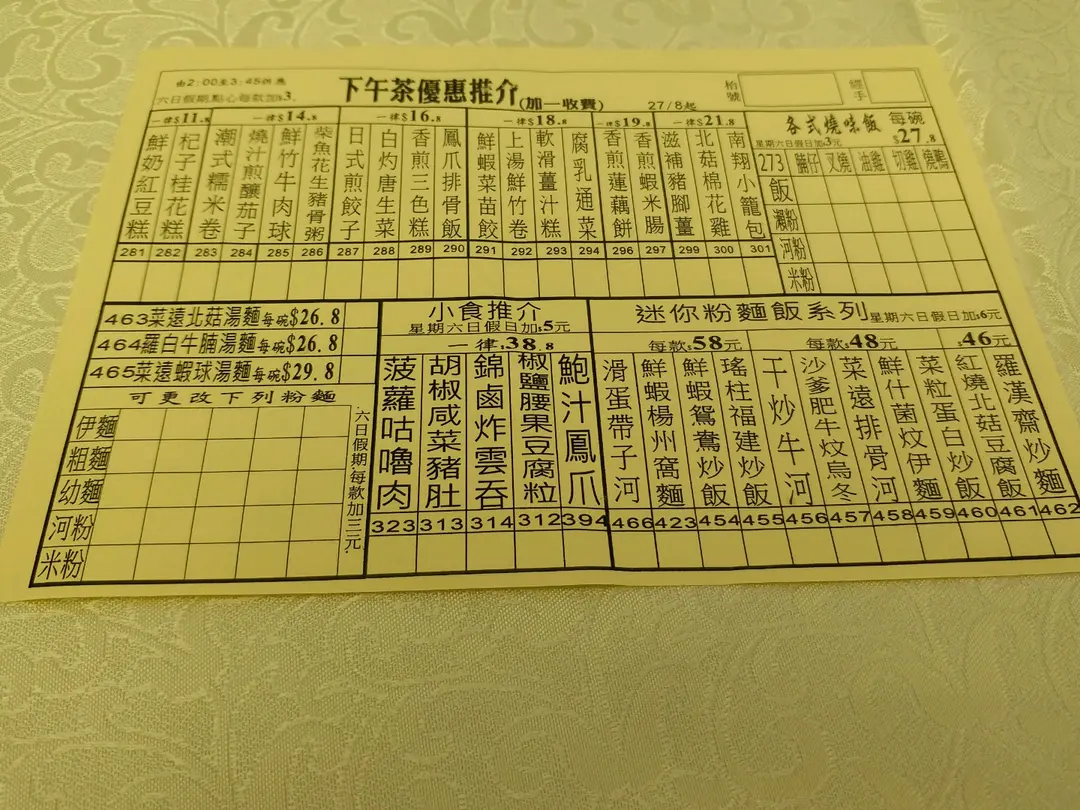 由2:00至3:45供應
六日假期點心每款加$3.
下午茶優惠推介(加一收費)
27/8起
枱號
經手
一律$11.8
鮮奶紅豆糕 281
杞子桂花糕 282
一律$14.8
潮式糯米卷 283
燒汁煎釀茄子 284
鮮竹牛肉球 285
柴魚花生豬骨粥 286
一律$16.8
日式煎餃子 287
白灼唐生菜 288
香煎三色糕 289
鳳爪排骨飯 290
一律$18.8
鮮蝦菜苗餃 291
上湯鮮竹卷 292
軟滑薑汁糕 293
腐乳通菜 294
一律$19.8
香煎蓮藕餅 296
香煎蝦米腸 297
一律$21.8
滋補豬腳薑 299
北菇棉花雞 300
南翔小籠包 301
各式燒味飯 每碗$27.8
星期六日假日加3元
273 腩仔 叉燒 油雞 切雞 燒鴨
飯
瀨粉
河粉
米粉
463菜遠北菇湯麵每碗$26.8
464蘿白牛腩湯麵每碗$26.8
465菜遠蝦球湯麵每碗$29.8
可更改下列粉麵
伊麵
粗麵
幼麵
河粉
米粉
六日假期每款加三元
小食推介
星期六日假日加$5元
一律$38.8
菠蘿咕嚕肉 323
胡椒咸菜豬肚 313
錦鹵炸雲吞 314
椒鹽腰果豆腐粒 312
鮑汁鳳爪 394
迷你粉麵飯系列 星期六日假日加$6元
每款$58元
滑蛋帶子河 466
鮮蝦楊州窩麵 423
鮮蝦鴛鴦炒飯 454
瑤柱福建炒飯 455
每款$48元
干炒牛河 456
沙爹肥牛炆烏冬 457
菜遠排骨河 458
鮮什菌炆伊麵 459
菜粒蛋白炒飯 460
$46元
紅燒北菇豆腐飯 461
羅漢齋炒麵 462